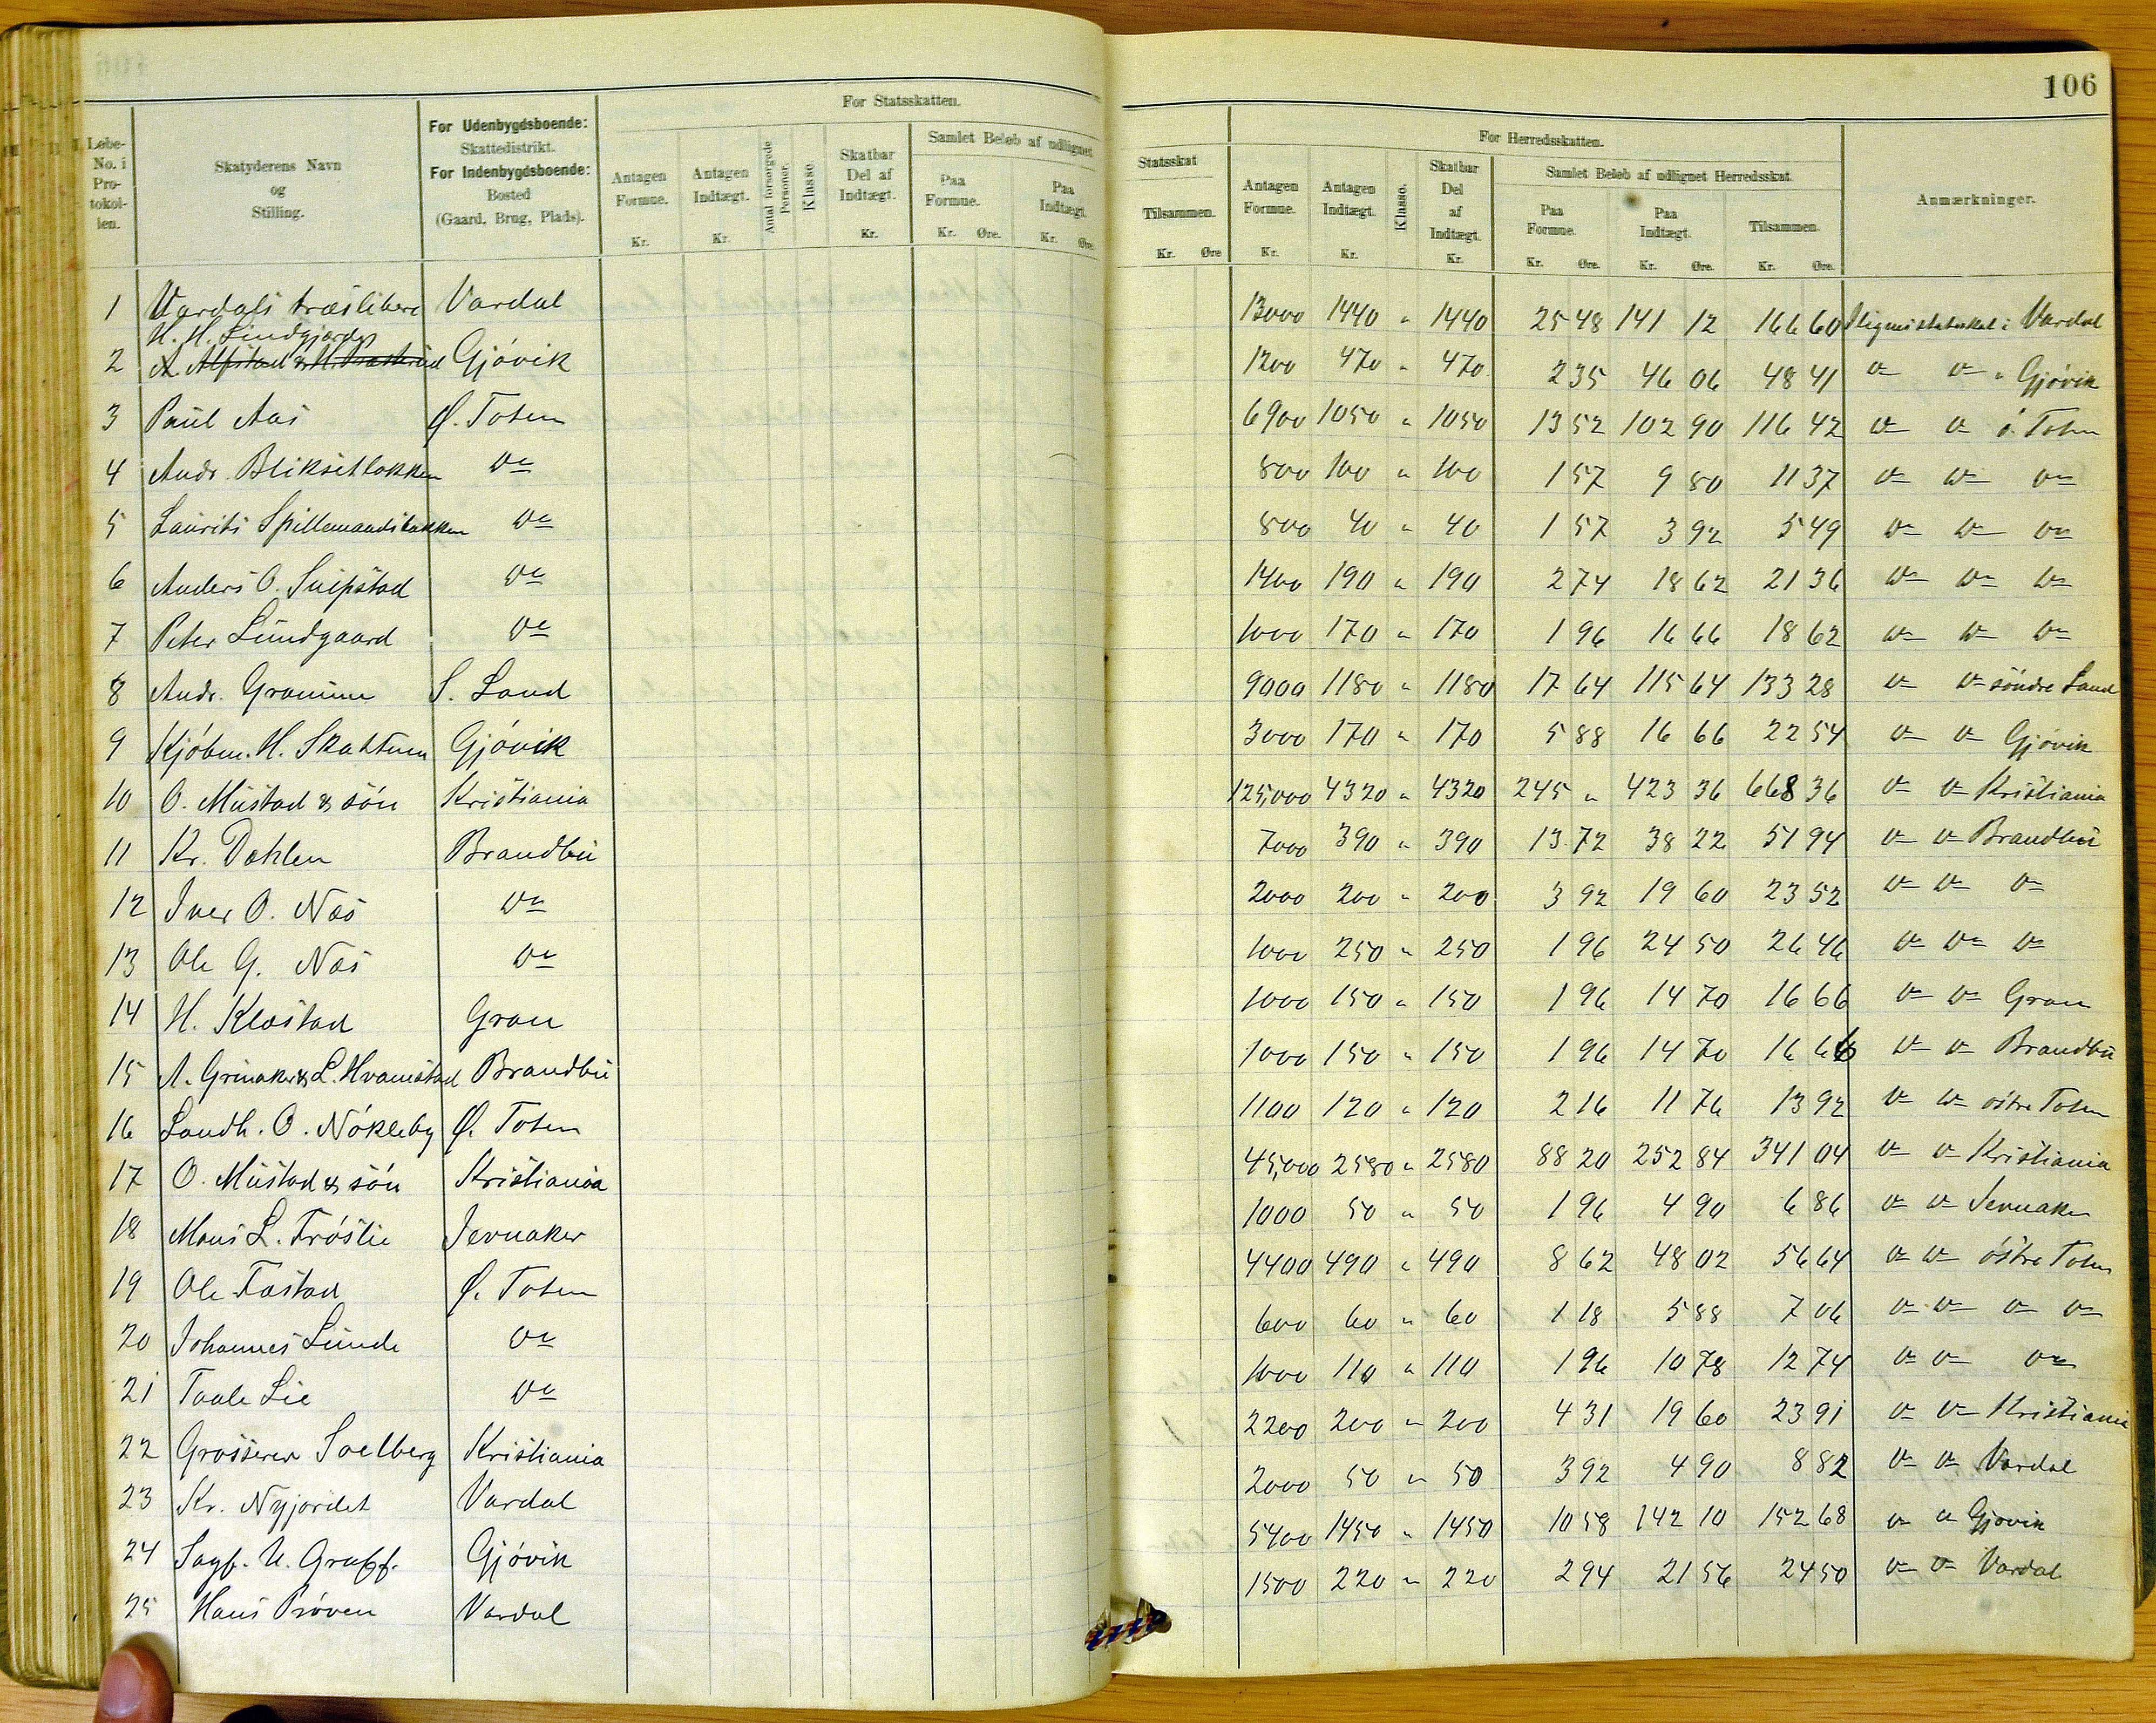 106
Løbe-No. i Pro-tokol-len.
Skatyderens Navn og Stilling.
For Udenbygdsboende: Skattedistrikt. For Indenbygdsboende: Bosted (Gaard, Brug, Plads).
For Statsskatten.
Antagen Formue. Kr.
Antagen Indtægt. Kr.
Antal forsørgede Personer.
Klasse.
Skatbar Del af Indtægt. Kr.
Samlet Beløb af udlignet
Paa Formue. Kr. Øre.
Paa Indtægt. Kr. Øre.
Statsskat
Tilsammen. Kr. Øre
For Herredsskatten.
Antagen Formue. Kr.
Antagen Indtægt. Kr.
Klasse.
Skatbar Del af Indtægt. Kr.
Samlet Beløb af udlignet Herredsskat.
Paa Formue. Kr. Øre.
Paa Indtægt. Kr. Øre.
Tilsammen. Kr. Øre.
Anmærkninger.
1 Vardals træsliberi Vardal 13000 1440 " 1440 25 48 141 12 166 60 i Vardal
H. H. Lindgjordet
2 Gjövik 1200 470 " 470 2 35 46 06 48 41 do do " Gjövik
3 Paul Aas Ø. Toten 6900 1050 " 1050 13 52 102 90 116 42 do do ö. Toten
4 Andr. Bliksetbakken do 800 100 " 100 1 57 9 80 11 37 do do do
5 Laurits Spillemandsbakken do 800 40 " 40 1 57 3 92 5 49 do do do
6 Anders O. Snipstad do 1400 190 " 190 2 74 18 62 21 36 do do do
7 Peter Lundgaard do 1000 170 " 170 1 96 16 66 18 62 do do do
8 Andr. Granum S. Land 9000 1180 " 1180 17 64 115 64 133 28 do do söndre Land
9 Kjöbm. H. Skattum Gjövik 3000 170 " 170 5 88 16 66 22 54 do do Gjövik
10 O. Mustad & sön Kristiania 125,000 4320 " 4320 245 " 423 36 668 36 do do Kristiania
11 Kr. Dahlen Brandbu 7000 390 " 390 13 72 38 22 51 94 do do Brandbu
12 Iver O. Næs do 2000 200 " 200 3 92 19 60 23 52 do do do
13 Ole G. Næs do 1000 250 " 250 1 96 24 50 26 46 do do do
14 H. Klæstad Gran 1000 150 " 150 1 96 14 70 16 66 do do Gran
15 A. Grinaker & L. Hvamstad Brandbu 1000 150 " 150 1 96 14 70 16 66 do do Brandbu
16 Landh. O. Nökleby Ø. Toten 1100 120 " 120 2 16 11 76 13 92 do do östre Toten
17 O. Mustad & sön Kristiania 45,000 2580 " 2580 88 20 252 84 341 04 do do Kristiania
18 Mons L. Fröslie Jevnaker 1000 50 " 50 1 96 4 90 6 86 do do Jevnaker
19 Ole Fastad Ø. Toten 4400 490 " 490 8 62 48 02 56 64 do do östre Toten
20 Johannes Lunde do 600 60 " 60 1 18 5 88 7 06 do do do do
21 Taale Lie do 1000 110 " 110 1 96 10 78 12 74 do do do
22 Grosserer Soelberg Kristiania 2200 200 " 200 4 31 19 60 23 91 do do Kristiania
23 Kr. Nyjordet Vardal 2000 50 " 50 3 92 4 90 8 82 do do Vardal
24 Sagf. U. Graff. Gjövik 5400 1450 " 1450 10 58 142 10 152 68 do do Gjövik
25 Hans Pröven Vardal 1500 220 " 220 2 94 21 56 24 50 do do Vardal